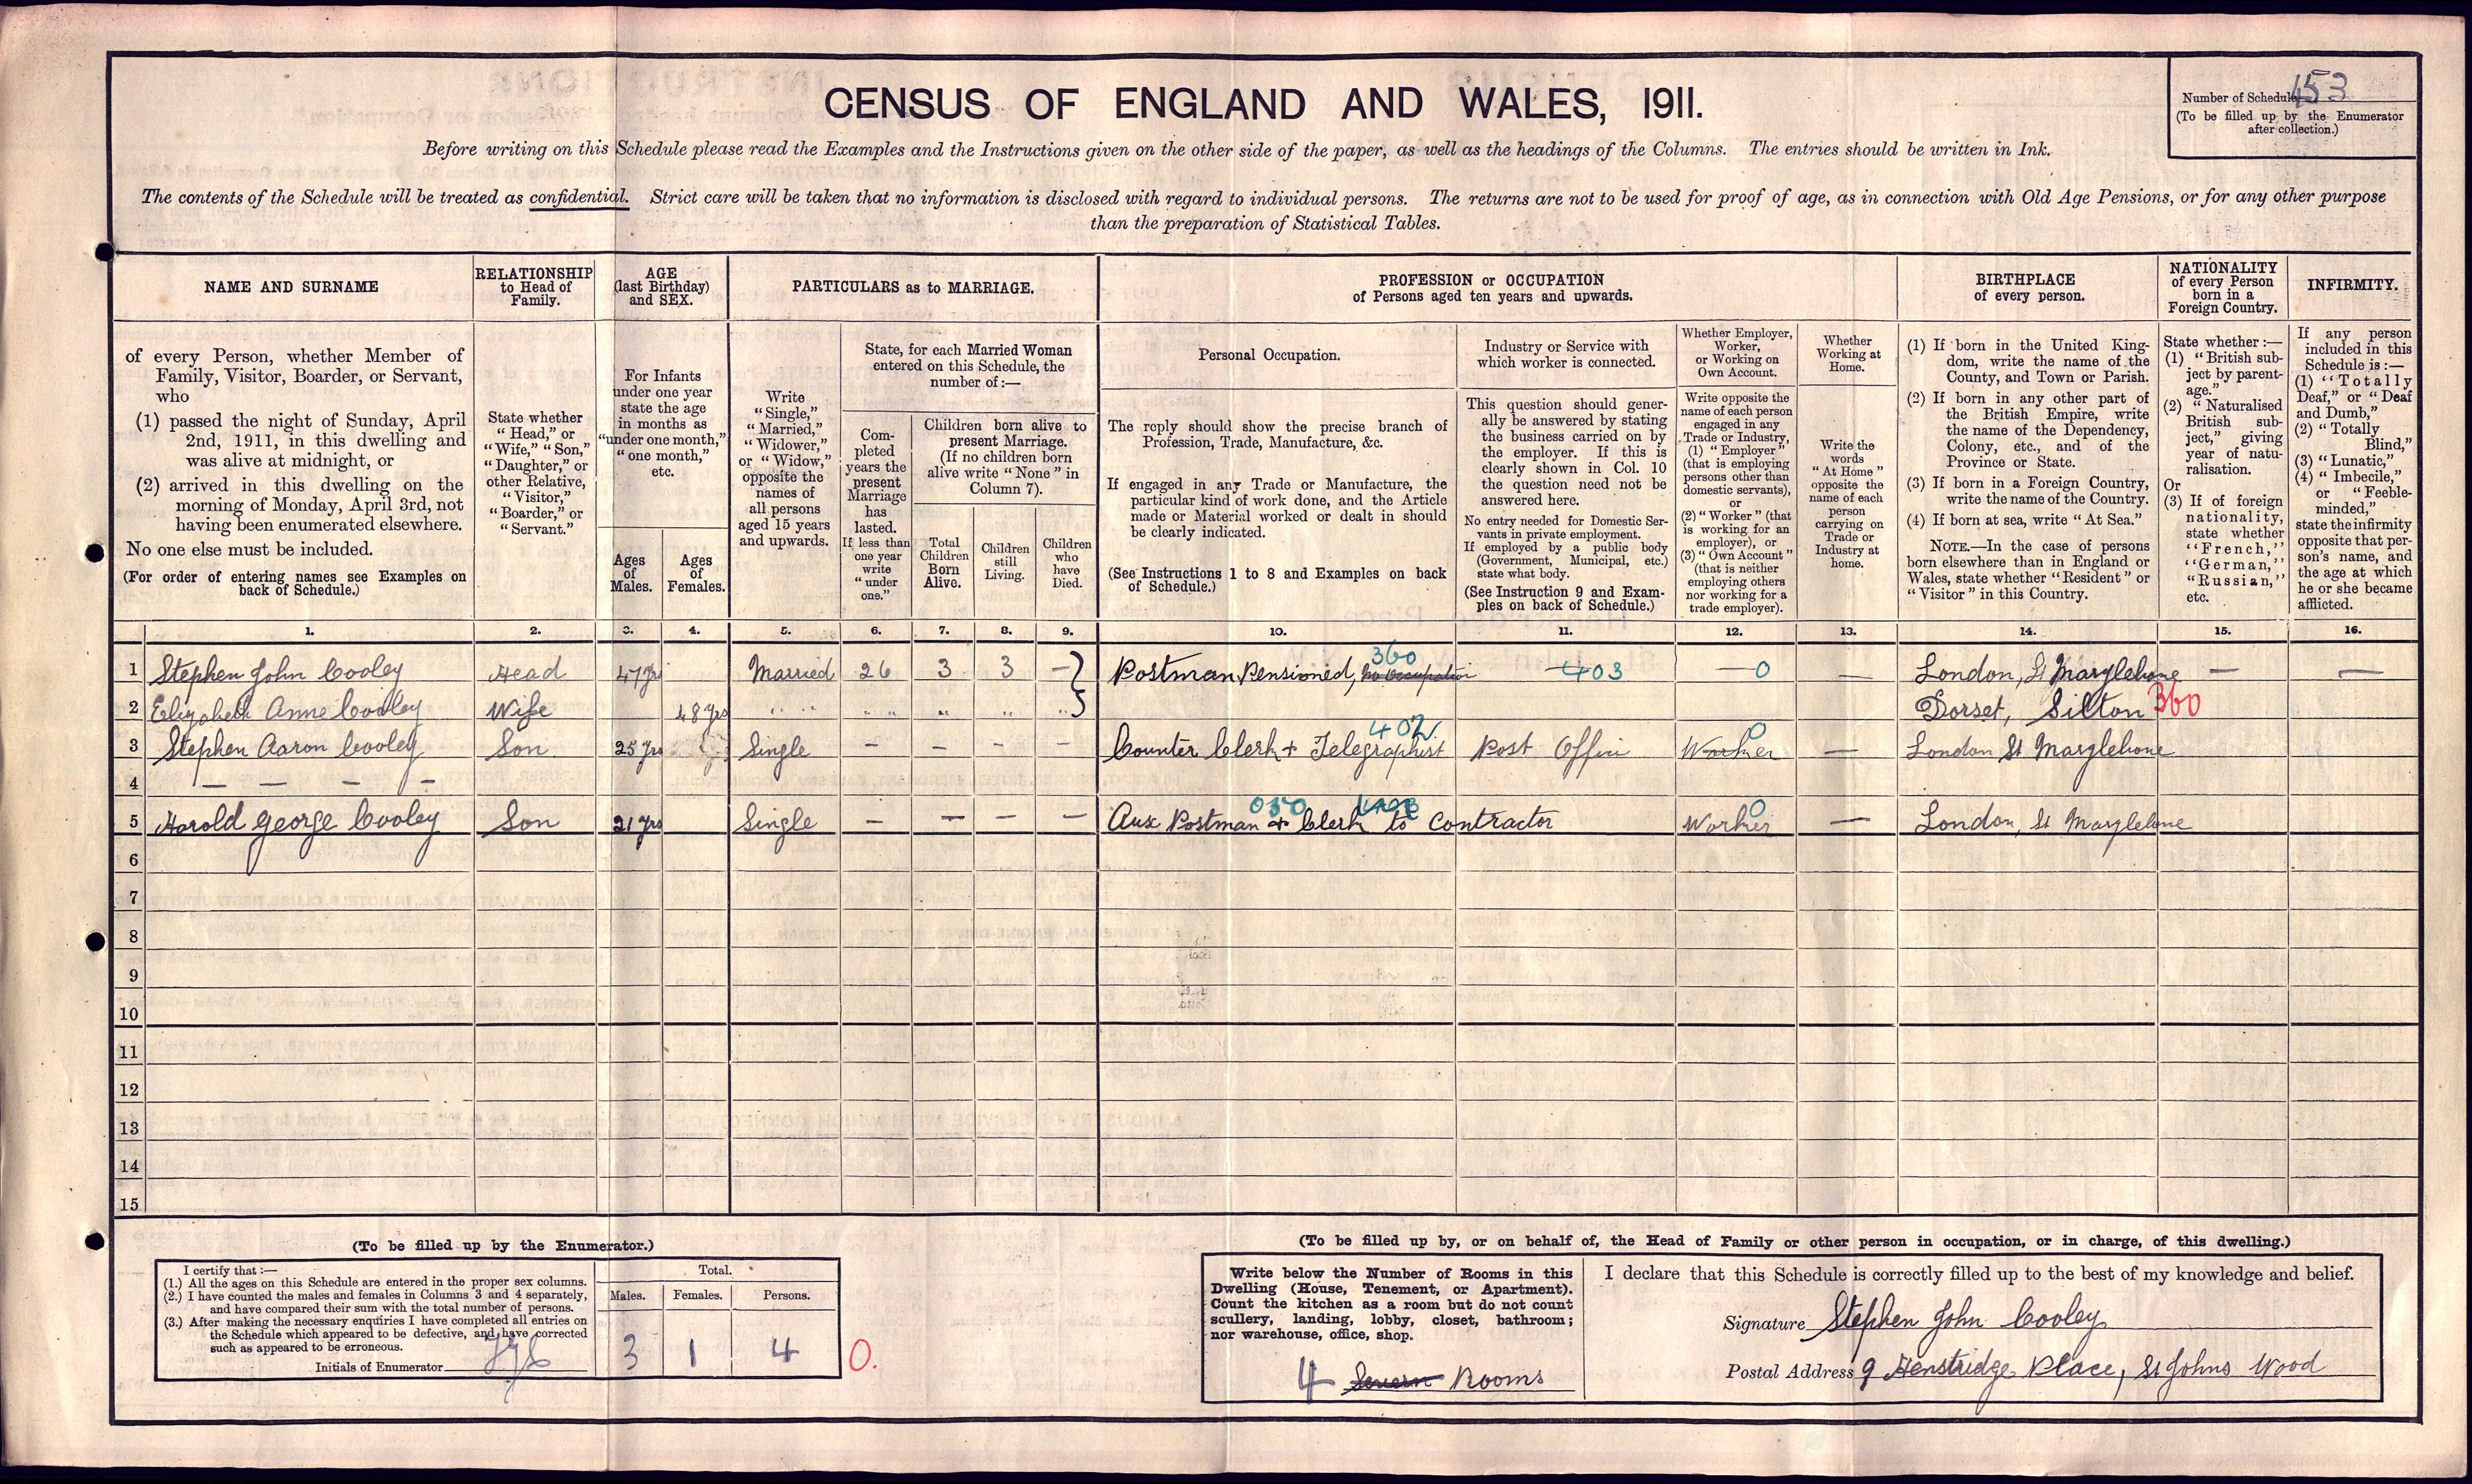 CENSUS OF ENGLAND AND WALES, 1911.
Number of Schedule 153
(To be filled up by the Enumerator
after collection.)
Before writing on this Schedule please read the Examples and the Instructions given on the other side of the paper, as well as the headings of the Columns. The entries should be written in Ink.
The contents of the Schedule will be treated as confidential. Strict care will be taken that no information is disclosed with regard to individual persons. The returns are not to be used for proof of age, as in connection with Old Age Pensions, or for any other purpose
than the preparation of Statistical Tables.
NAME AND SURNAME
RELATIONSHIP
to Head of
Family.
AGE
(last Birthday)
and SEX.
PARTICULARS as to MARRIAGE.
PROFESSION or OCCUPATION
of Persons aged ten years and upwards.
BIRTHPLACE
of every person.
NATIONALITY
of every Person
born in a
Foreign Country.
INFIRMITY.
of every Person, whether Member of
Family, Visitor, Boarder, or Servant,
who
(1) passed the night of Sunday, April
2nd, 1911, in this dwelling and
was alive at midnight, or
(2) arrived in this dwelling on the
morning of Monday, April 3rd, not
having been enumerated elsewhere.
No one else must be included.
(For order of entering names see Examples on
back of Schedule.)
State whether
"Head," or
"Wife," "Son,"
"Daughter," or
other Relative,
"Visitor,"
"Boarder," or
"Servant."
For Infants
under one year
state the age
in months as
"under one month,"
"one month,"
etc.
Ages
of
Males.
Ages
of
Females.
Write
"Single,"
"Married,"
"Widower,"
or "Widow,"
opposite the
names of
all persons
aged 15 years
and upwards.
State, for each Married Woman
entered on this Schedule, the
number of:—
Com-
pleted
years the
present
Marriage
has
lasted.
If less than
one year
write
"under
one."
Children born alive to
present Marriage.
(If no children born
alive write "None" in
Column 7).
Total
Children
Born
Alive.
Children
still
Living.
Children
who
have
Died.
Personal Occupation.
The reply should show the precise branch of
Profession, Trade, Manufacture, &c.
If engaged in any Trade or Manufacture, the
particular kind of work done, and the Article
made or Material worked or dealt in should
be clearly indicated.
(See Instructions 1 to 8 and Examples on back
of Schedule.)
Industry or Service with
which worker is connected.
This question should gener-
ally be answered by stating
the business carried on by
the employer. If this is
clearly shown in Col. 10
the question need not be
answered here.
No entry needed for Domestic Ser-
vants in private employment.
If employed by a public body
(Government, Municipal, etc.)
state what body.
(See Instruction 9 and Exam-
ples on back of Schedule.)
Whether Employer,
Worker,
or Working on
Own Account.
Write opposite the
name of each person
engaged in any
Trade or Industry,
(1) "Employer"
(that is employing
persons other than
domestic servants),
or
(2) "Worker" (that
is working for an
employer), or
(3) "Own Account"
(that is neither
employing others
nor working for a
trade employer).
Whether
Working at
Home.
Write the
words
"At Home"
opposite the
name of each
person
carrying on
Trade or
Industry at
home.
(1) If born in the United King-
dom, write the name of the
County, and Town or Parish.
(2) If born in any other part of
the British Empire, write
the name of the Dependency,
Colony, etc., and of the
Province or State.
(3) If born in a Foreign Country,
write the name of the Country.
(4) If born at sea, write "At Sea."
NOTE.—In the case of persons
born elsewhere than in England or
Wales, state whether "Resident" or
"Visitor" in this Country.
State whether:—
(1) "British sub-
ject by parent-
age."
(2) "Naturalised
British sub-
ject," giving
year of natu-
ralisation.
Or
(3) If of foreign
nationality,
state whether
"French,"
"German,"
"Russian,"
etc.
If any person
included in this
Schedule is:—
(1) "Totally
Deaf," or "Deaf
and Dumb,"
(2) "Totally
Blind,"
(3) "Lunatic,"
(4) "Imbecile,"
or "Feeble-
minded,"
state the infirmity
opposite that per-
son's name, and
the age at which
he or she became
afflicted.
1. 2. 3. 4. 5. 6. 7. 8. 9. 10. 11. 12. 13. 14. 15. 16.
360
1 Stephen John Cooley Head 47 yrs Married 26 3 3 — Postman Pensioned, No Occupation 403 — 0 — London, St Marylebone — —
2 Elizabeth Anne Cooley Wife 48 yrs " " " " " " " Dorset, Silton 360
402
3 Stephen Aaron Cooley Son 25 yrs Single — — — — Counter Clerk + Telegraphist Post Office Worker 0 — London St Marylebone
4 — — — —
050
5 Harold George Cooley Son 21 yrs Single — — — — Aux Postman & Clerk to Contractor Worker 0 — London, St Marylebone
6
7
8
9
10
11
12
13
14
15
(To be filled up by the Enumerator.)
I certify that:—
(1.) All the ages on this Schedule are entered in the proper sex columns.
(2.) I have counted the males and females in Columns 3 and 4 separately,
and have compared their sum with the total number of persons.
(3.) After making the necessary enquiries I have completed all entries on
the Schedule which appeared to be defective, and have corrected
such as appeared to be erroneous.
Initials of Enumerator
Total.
Males. Females. Persons.
3 1 4 0.
(To be filled up by, or on behalf of, the Head of Family or other person in occupation, or in charge, of this dwelling.)
Write below the Number of Rooms in this
Dwelling (House, Tenement, or Apartment).
Count the kitchen as a room but do not count
scullery, landing, lobby, closet, bathroom;
nor warehouse, office, shop.
4 Seven Rooms
I declare that this Schedule is correctly filled up to the best of my knowledge and belief.
Signature Stephen John Cooley
Postal Address 9 Henstridge Place, St Johns Wood